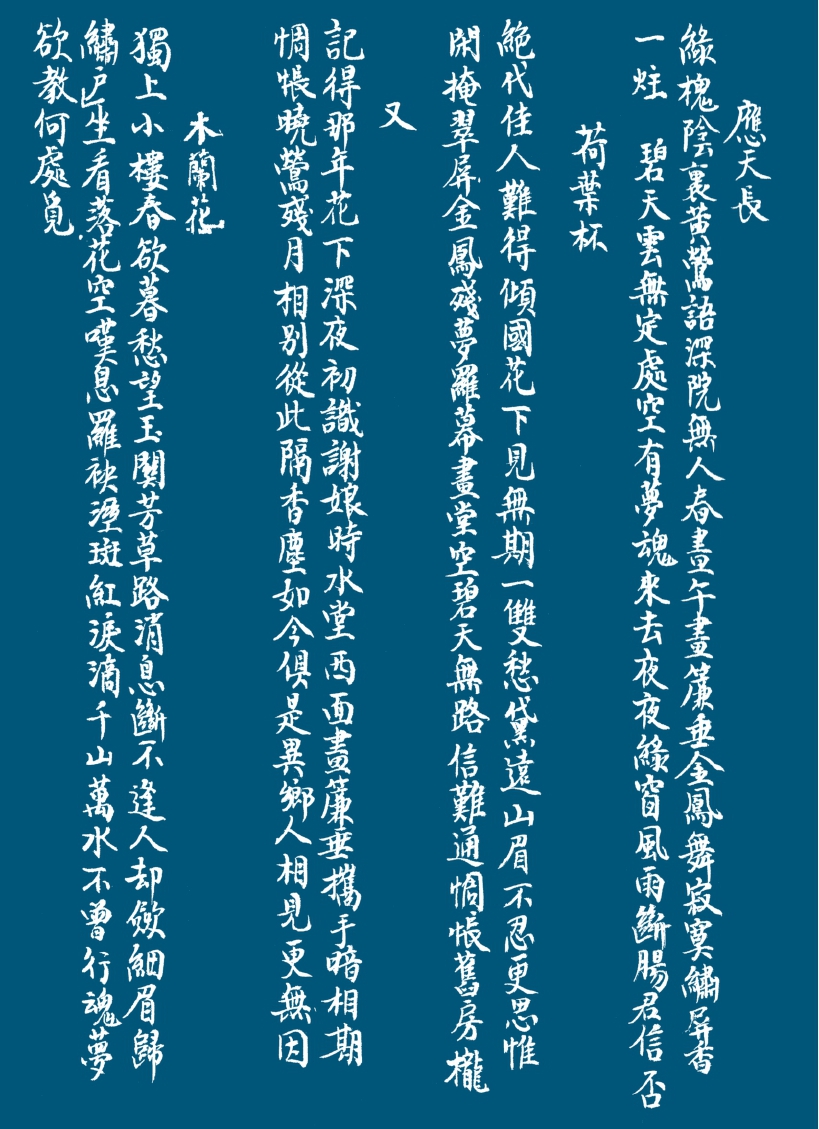 應天長
綠槐陰裏黃鶯語深院無人春晝午畫簾垂金鳳舞寂寞繡屏香
一炷　碧天雲無定處空有夢魂來去夜夜綠窗風雨斷腸君信否
荷葉杯
絕代佳人難得傾國花下見無期一雙愁黛遠山眉不忍更思惟
閑掩翠屏金鳳殘夢羅幕畫堂空碧天無路信難通惆悵舊房櫳
又
記得那年花下深夜初識謝娘時水堂西面畫簾垂攜手暗相期
惆悵曉鶯殘月相別從此隔香塵如今俱是異鄉人相見更無因
木蘭花
獨上小樓春欲暮愁望玉關芳草路消息斷不逢人却斂細眉歸
繡户坐看落花空嘆息羅袂溼斑紅淚滴千山萬水不曾行魂夢
欲教何處覓